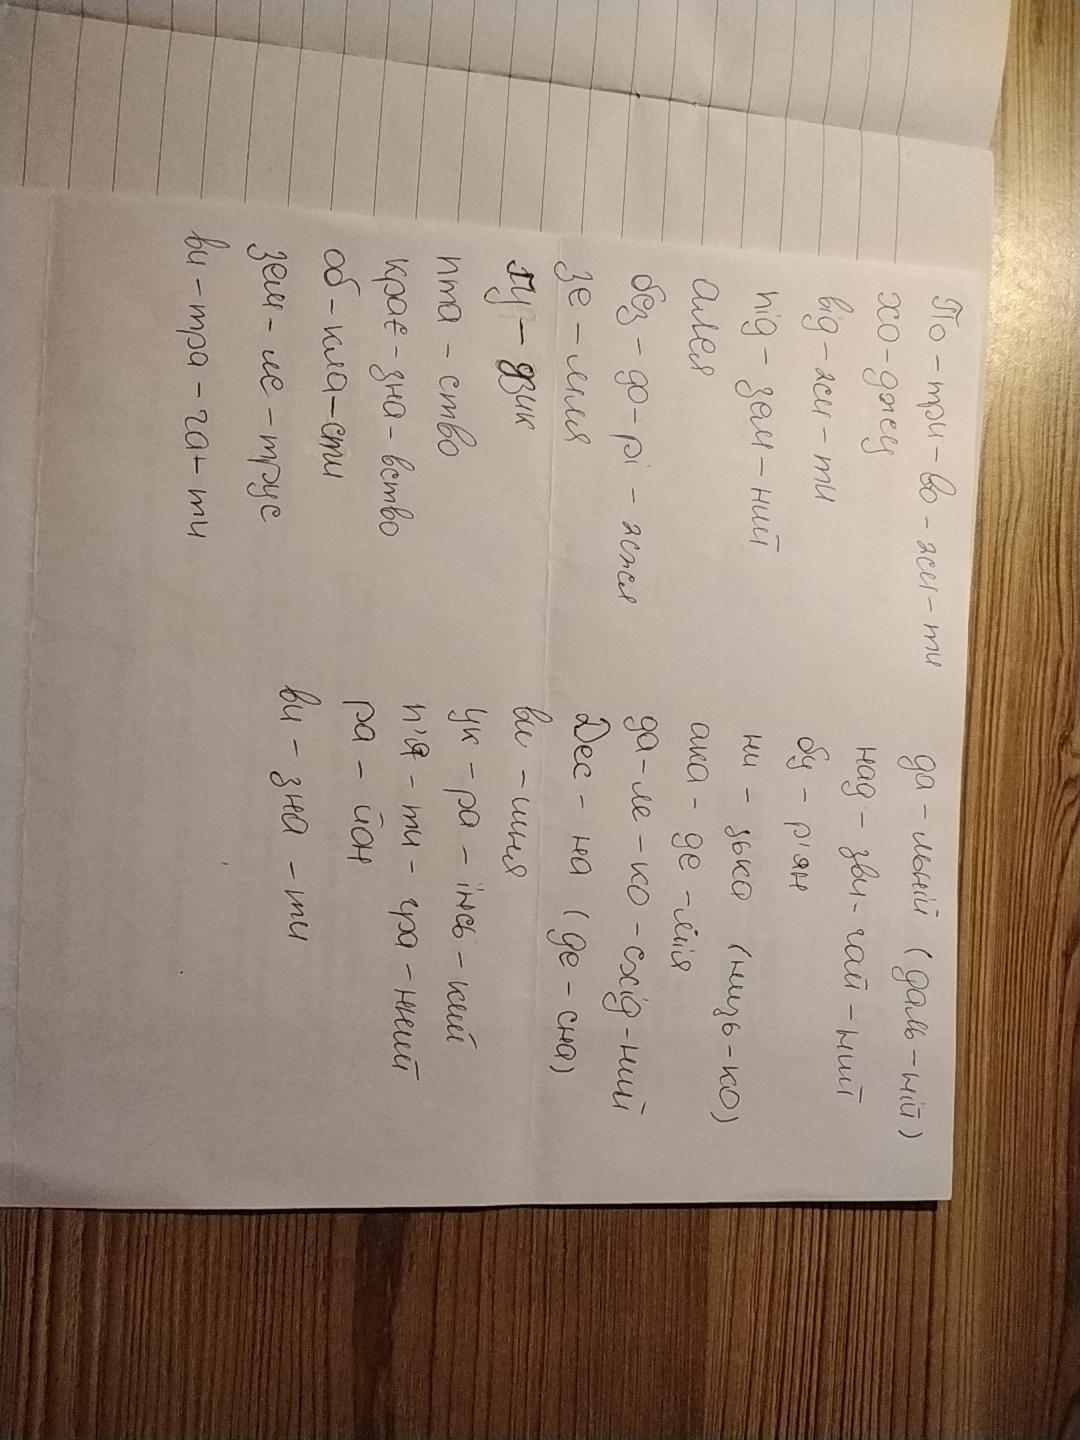 По-три-во-жи-ти
хо-джу
від-жи-ти
під-зем-ний
алея
без-до-рі-жжя
зе-мля
ґу-дзик
пта-ство
крає-зна-вство
об-кла-сти
зем-ле-трус
ви-тра-ча-ти
да-льній (даль-ній)
над-зви-чай-ний
бу-р'ян
ни-зька (низь-ко)
ака-де-мія
да-ле-ко-схід-ний
Дес-на (де-сна)
ви-шня
ук-ра-їнсь-кий
п'я-ти-гра-нний
ра-йон
ви-зна-ти